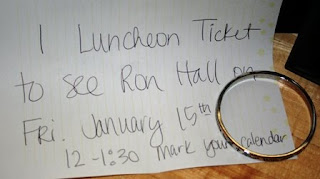 1 Luncheon Ticket
to see Ron Hall on
Fri. January 15th
12-1:30 mark your calendar